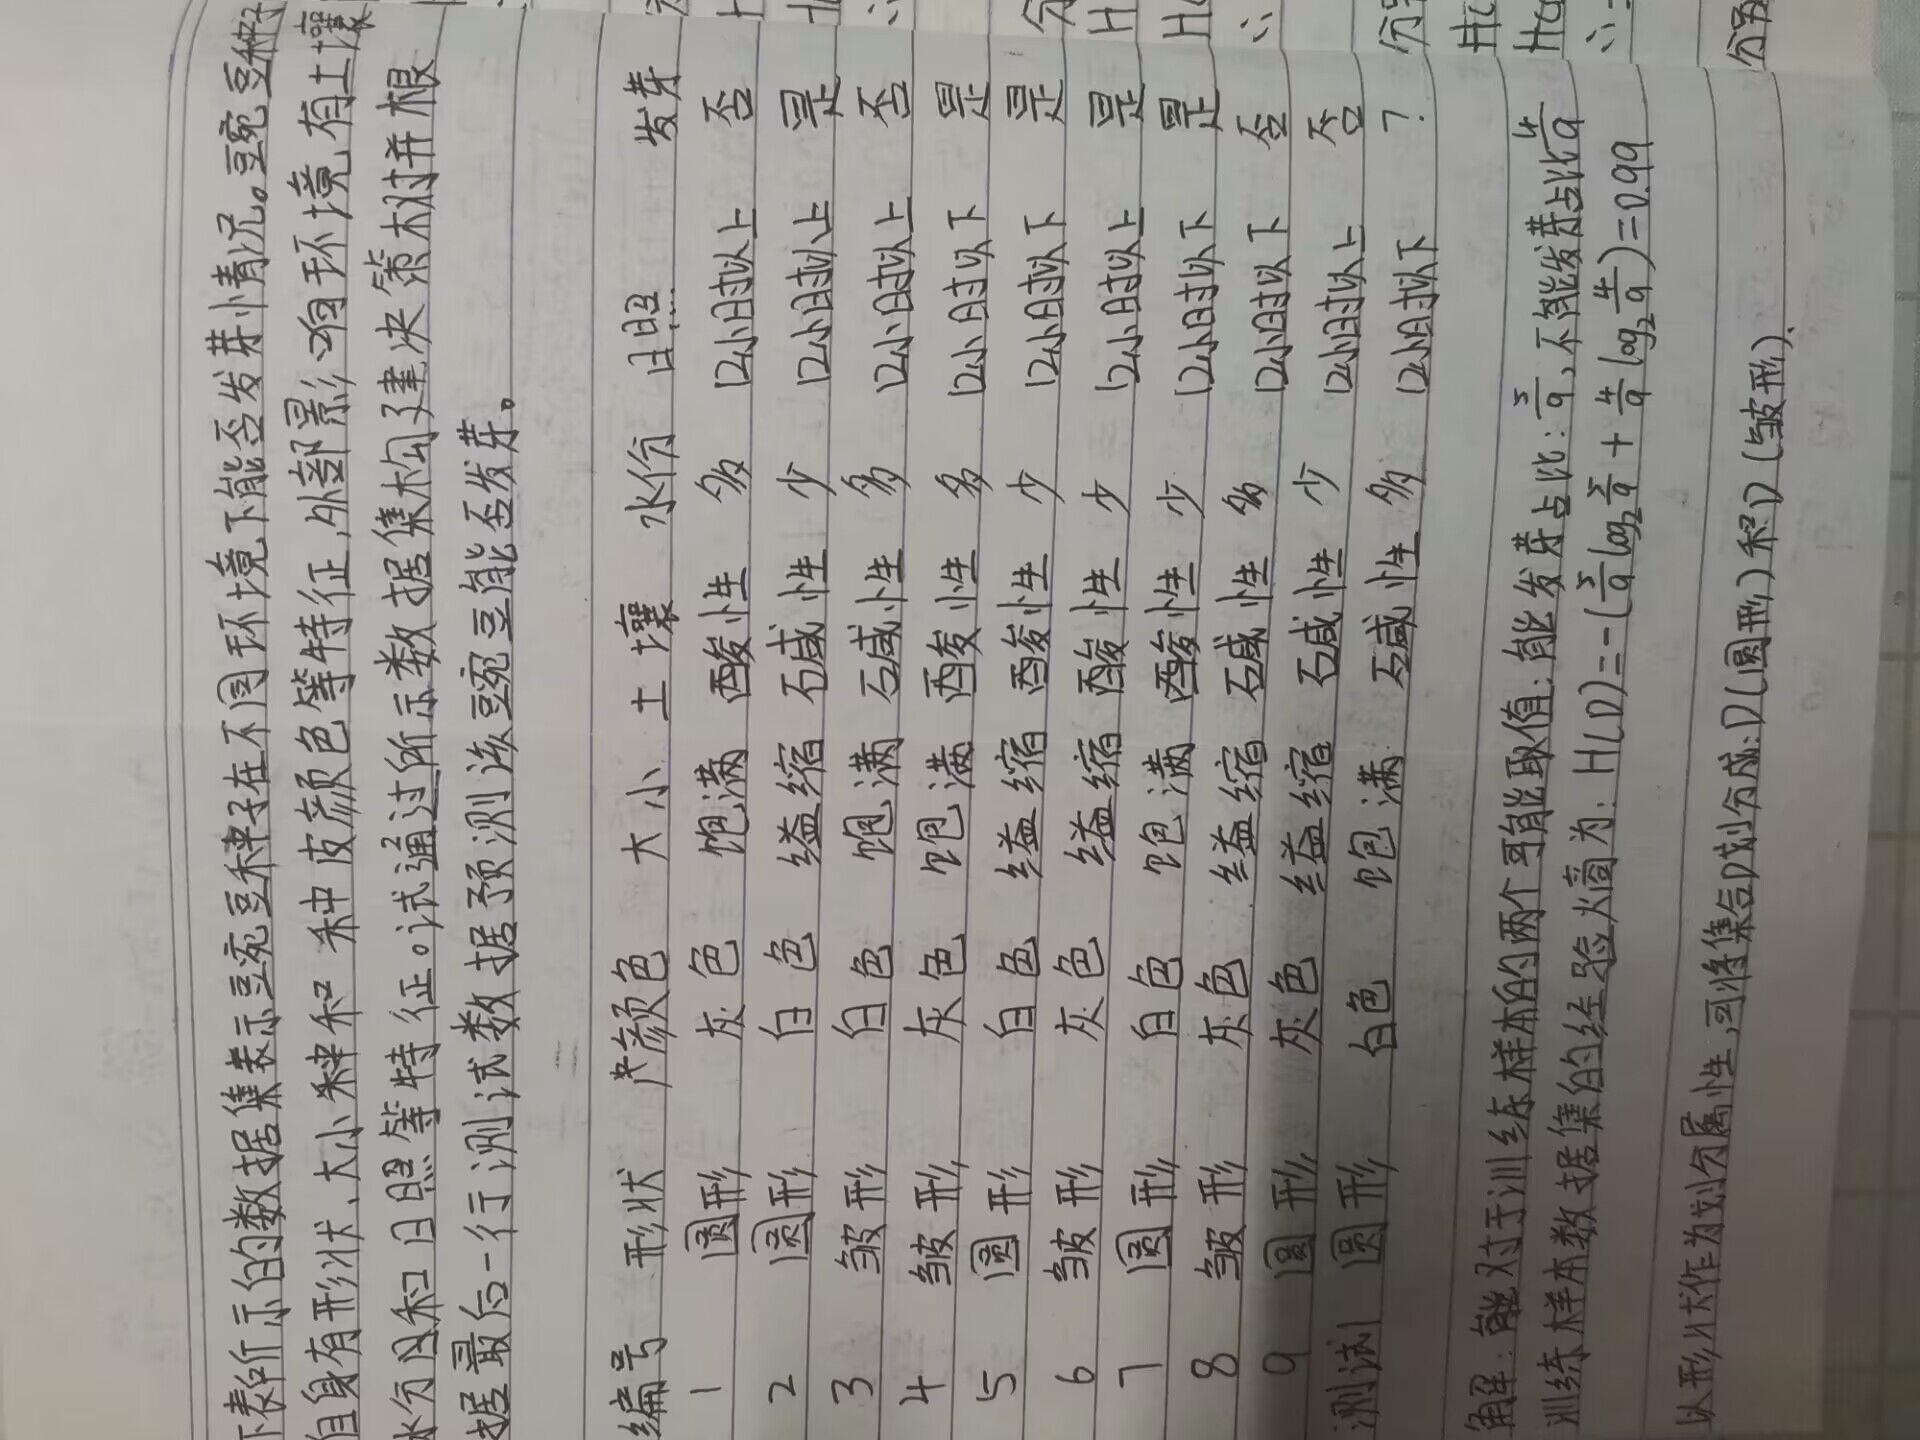 下表所示的数据集表示豌豆种子在不同环境下能否发芽情况。豌豆种子
自身有形状、大小种和 种皮颜色等特征,外部影响环境有土壤
水分和日照等特征。试通过所示数据集构建决策树并根
据最后一行测试数据预测该豌豆能否发芽。
编号 形状 颜色 大小 土壤 水分 日照 发芽
1 圆形 灰色 饱满 酸性 多 12小时以上 否
2 圆形 白色 缢缩 碱性 少 12小时以上 是
3 皱形 白色 饱满 碱性 多 12小时以上 否
4 皱形 灰色 饱满 酸性 多 12小时以下 是
5 圆形 白色 缢缩 酸性 少 12小时以下 是
6 皱形 灰色 缢缩 酸性 少 12小时以上 是
7 圆形 白色 饱满 酸性 少 12小时以下 是
8 皱形 灰色 缢缩 碱性 多 12小时以下 否
9 圆形 灰色 缢缩 碱性 少 12小时以上 否
测试 圆形 白色 饱满 碱性 多 12小时以下 ?
解:能对于训练样本的两个可能取值:能发芽占比:5/9,不能发芽占比4/9
训练样本数据集的经验熵为:H(D)=-(5/9 log₂ 5/9 + 4/9 log₂ 4/9)=0.99
以形状作为划分属性,可将集合D划分成:D(圆形)和D(皱形).